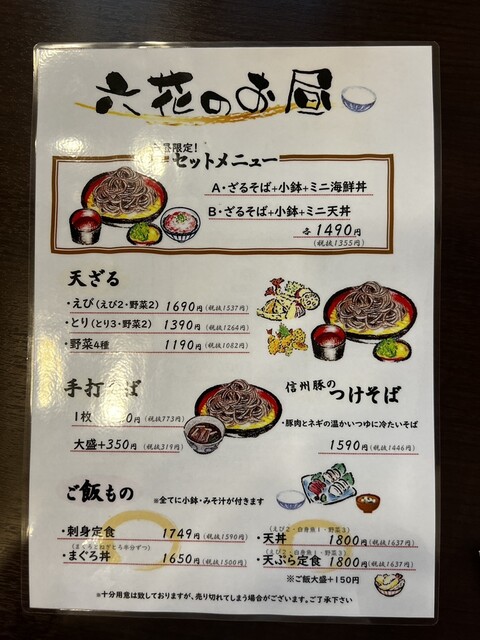 六花のお昼
昼限定!
セットメニュー
A・ざるそば+小鉢+ミニ海鮮丼
B・ざるそば+小鉢+ミニ天丼
各1490円
(税抜1355円)
天ざる
・えび(えび2・野菜2) 1690円(税抜1537円)
・とり(とり3・野菜2) 1390円(税抜1264円)
・野菜4種 1190円(税抜1082円)
手打 ば
1枚 0円(税抜773円)
大盛+350円(税抜319円)
信州豚のつけそば
・豚肉とネギの温かいつゆに冷たいそば
1590円(税抜1446円)
ご飯もの ※全てに小鉢・みそ汁が付きます
・刺身定食 1749円(税抜1590円)
(まぐろとねぎとろ半分ずつ)
・まぐろ丼 1650円(税抜1500円)
(えび2・白身魚1・野菜3)
・天丼 1800円(税抜1637円)
(えび2・白身魚1・野菜3)
・天ぷら定食 1800円(税抜1637円)
※ご飯大盛+150円
※十分用意は致しておりますが、売り切れてしまう場合がございます。ご了承下さい